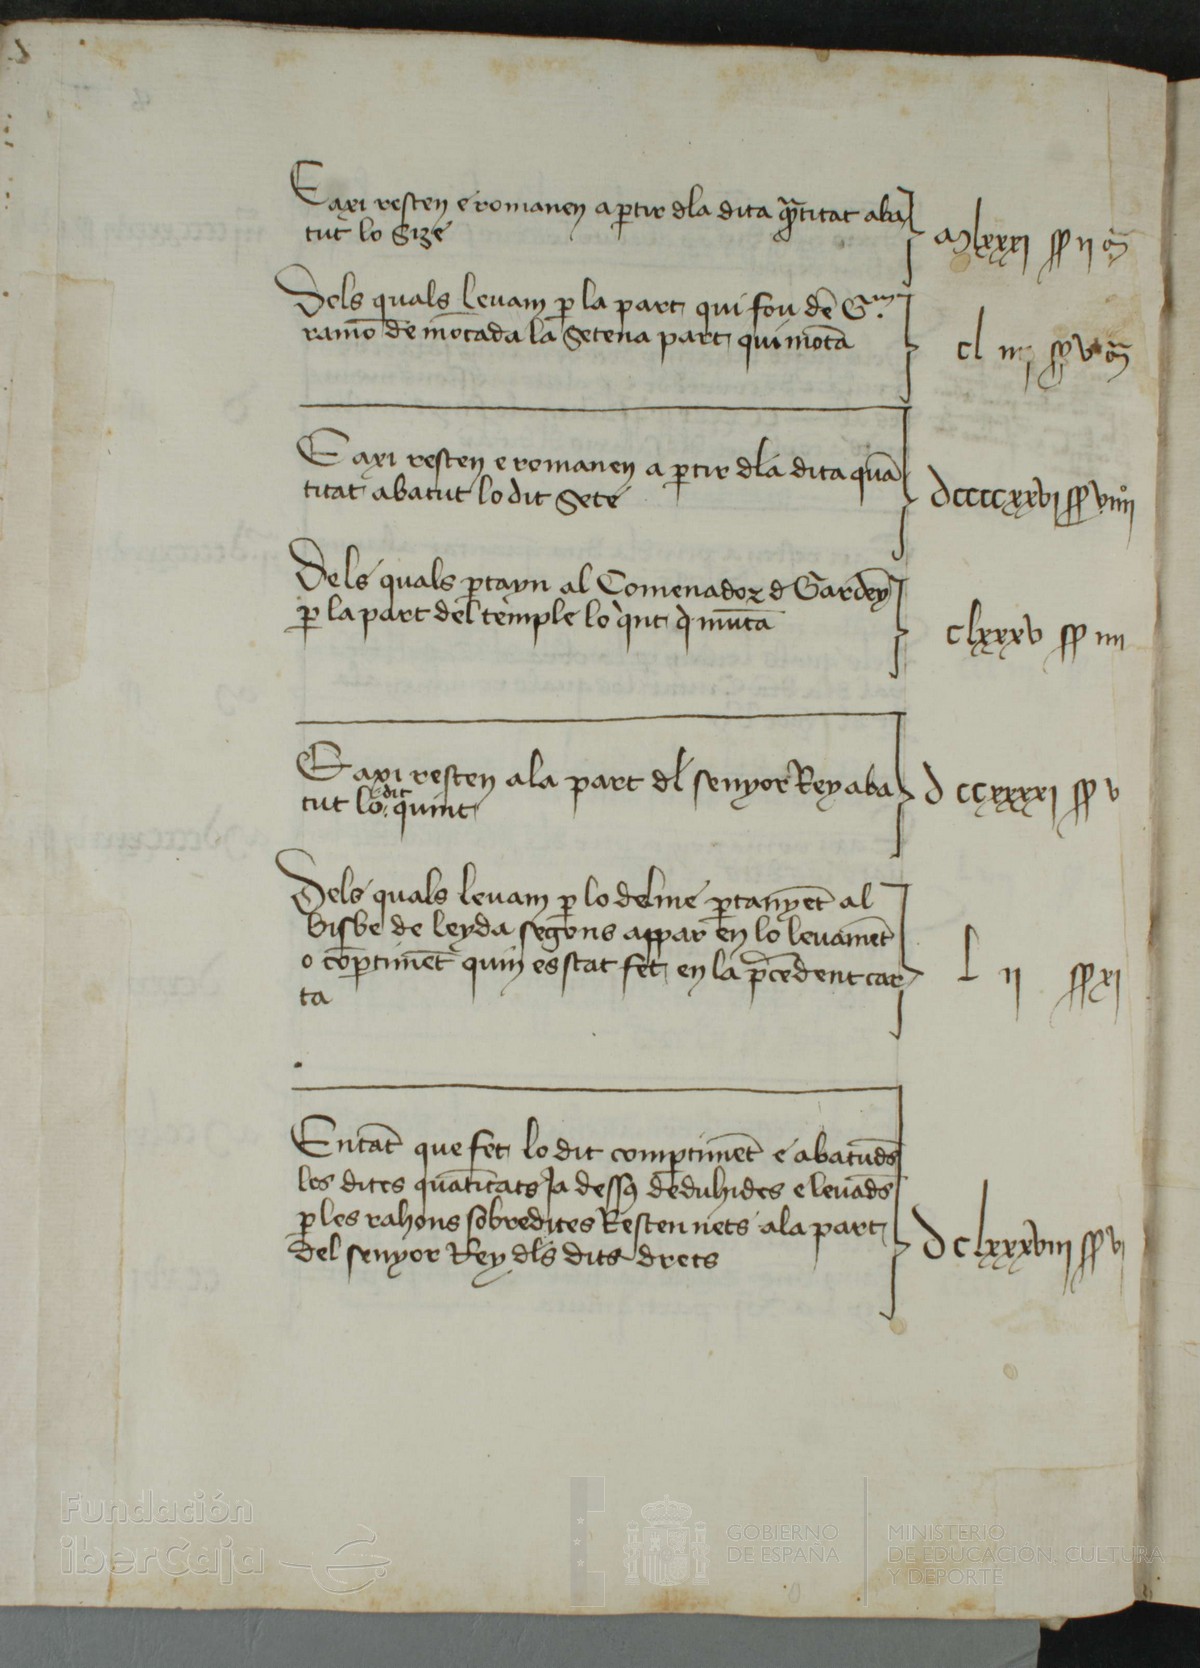 E axi resten e romanen a ꝑtir dla dita qᵃ̃titat aba
tut lo Sizè
mlxxxi ss ii dʳ̃
Dels quals leuam ꝑ la part qui fou dẽ Gᵐ.
ramõ de mõcada la Setena part qui mõta
cl iiij ss v dʳ̃
E axi resten e romanen a ꝑtir dla dita quã
titat abatut lo dit Setè
dccccxxvi ss viiij
Dels quals ꝑtayn al Comenador d Gardeny
ꝑ la part del temple lo qⁱnt qⁱ mũta
clxxxv ss iiii
E axi resten ala part dl senyor Rey aba
tut lo dit quint
d ccxxxxi ss v
Dels quals leuam ꝑ lo delme ꝑtanyẽt al
bisbe de leyda segons appar en lo leuamẽt
o cõꝑtimẽt quin es stat fet en la p̃cedent car
ta
l ii ss xi
Entãt que fet lo dit comꝑtimẽt e abatudˢ
les dites quãtitats ia dessꝰ deduhides e leuadˢ
ꝑ les rahons sobredites Resten nets ala part
del senyor Rey dls dits drets
dclxxxviii ss vi
Fundación
iberCaja
GOBIERNO
DE ESPAÑA
MINISTERIO
DE EDUCACIÓN, CULTURA
Y DEPORTE